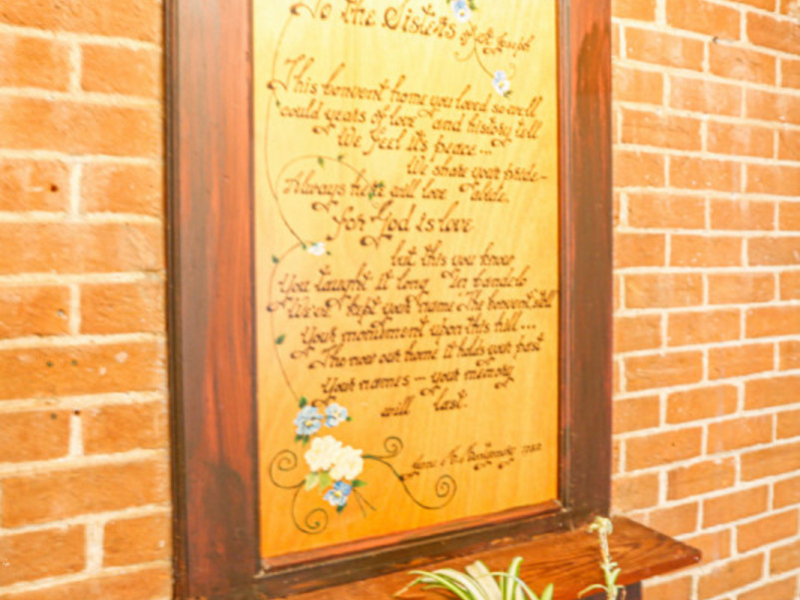 To the Sisters of St. Joseph
This convent home you loved so well
could years of love and history tell
We feel it's peace...
We share your pride-
Always here will love abide.
for God is love
but this you know
You taught it long in Bendelo
We've kept your name "The Convent Hill"
Your monument upon this hill...
Tho now our home it holds your past
Your names - your memory
will last.